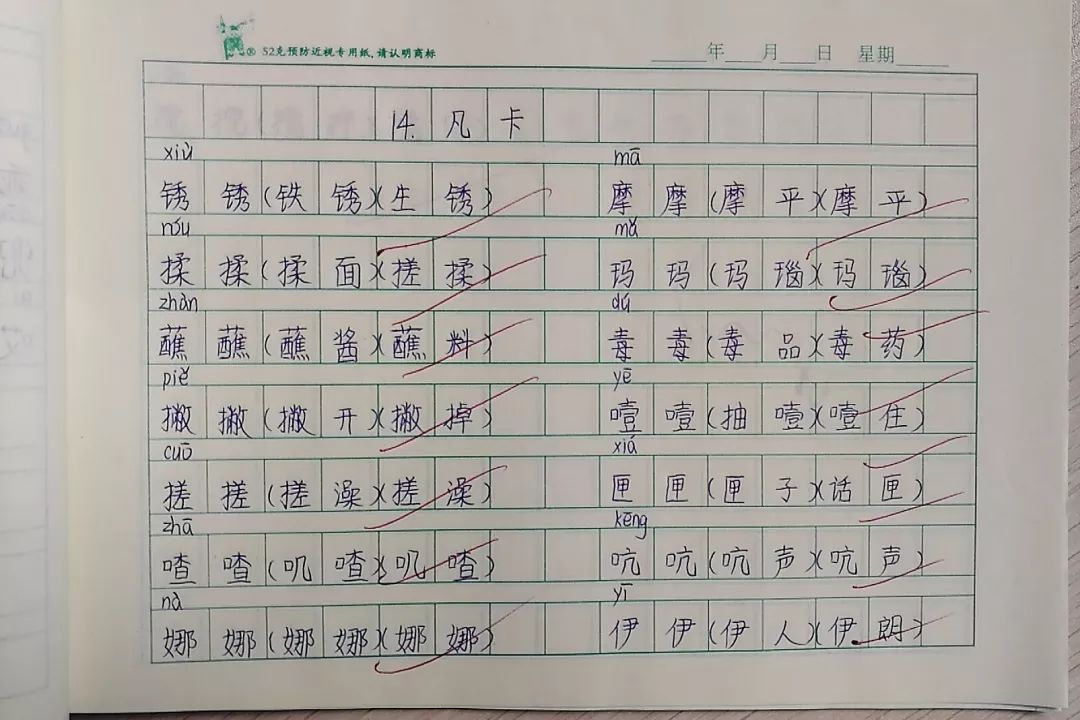 52克预防近视专用纸,请认明商标
年 月 日 星期
14. 凡卡
xiù mā
锈锈(铁锈)(生锈) 摩摩(摩平)(摩平)
róu mǎ
揉揉(揉面)(搓揉) 玛玛(玛瑙)(玛瑙)
zhàn dú
蘸蘸(蘸酱)(蘸料) 毒毒(毒品)(毒药)
piě yē
撇撇(撇开)(撇掉) 噎噎(抽噎)(噎住)
cuō xiá
搓搓(搓澡)(搓澡) 匣匣(匣子)(话匣)
zhā kēng
喳喳(叽喳)(叽喳) 吭吭(吭声)(吭声)
nà yī
娜娜(娜娜)(娜娜) 伊伊(伊人)(伊朗)